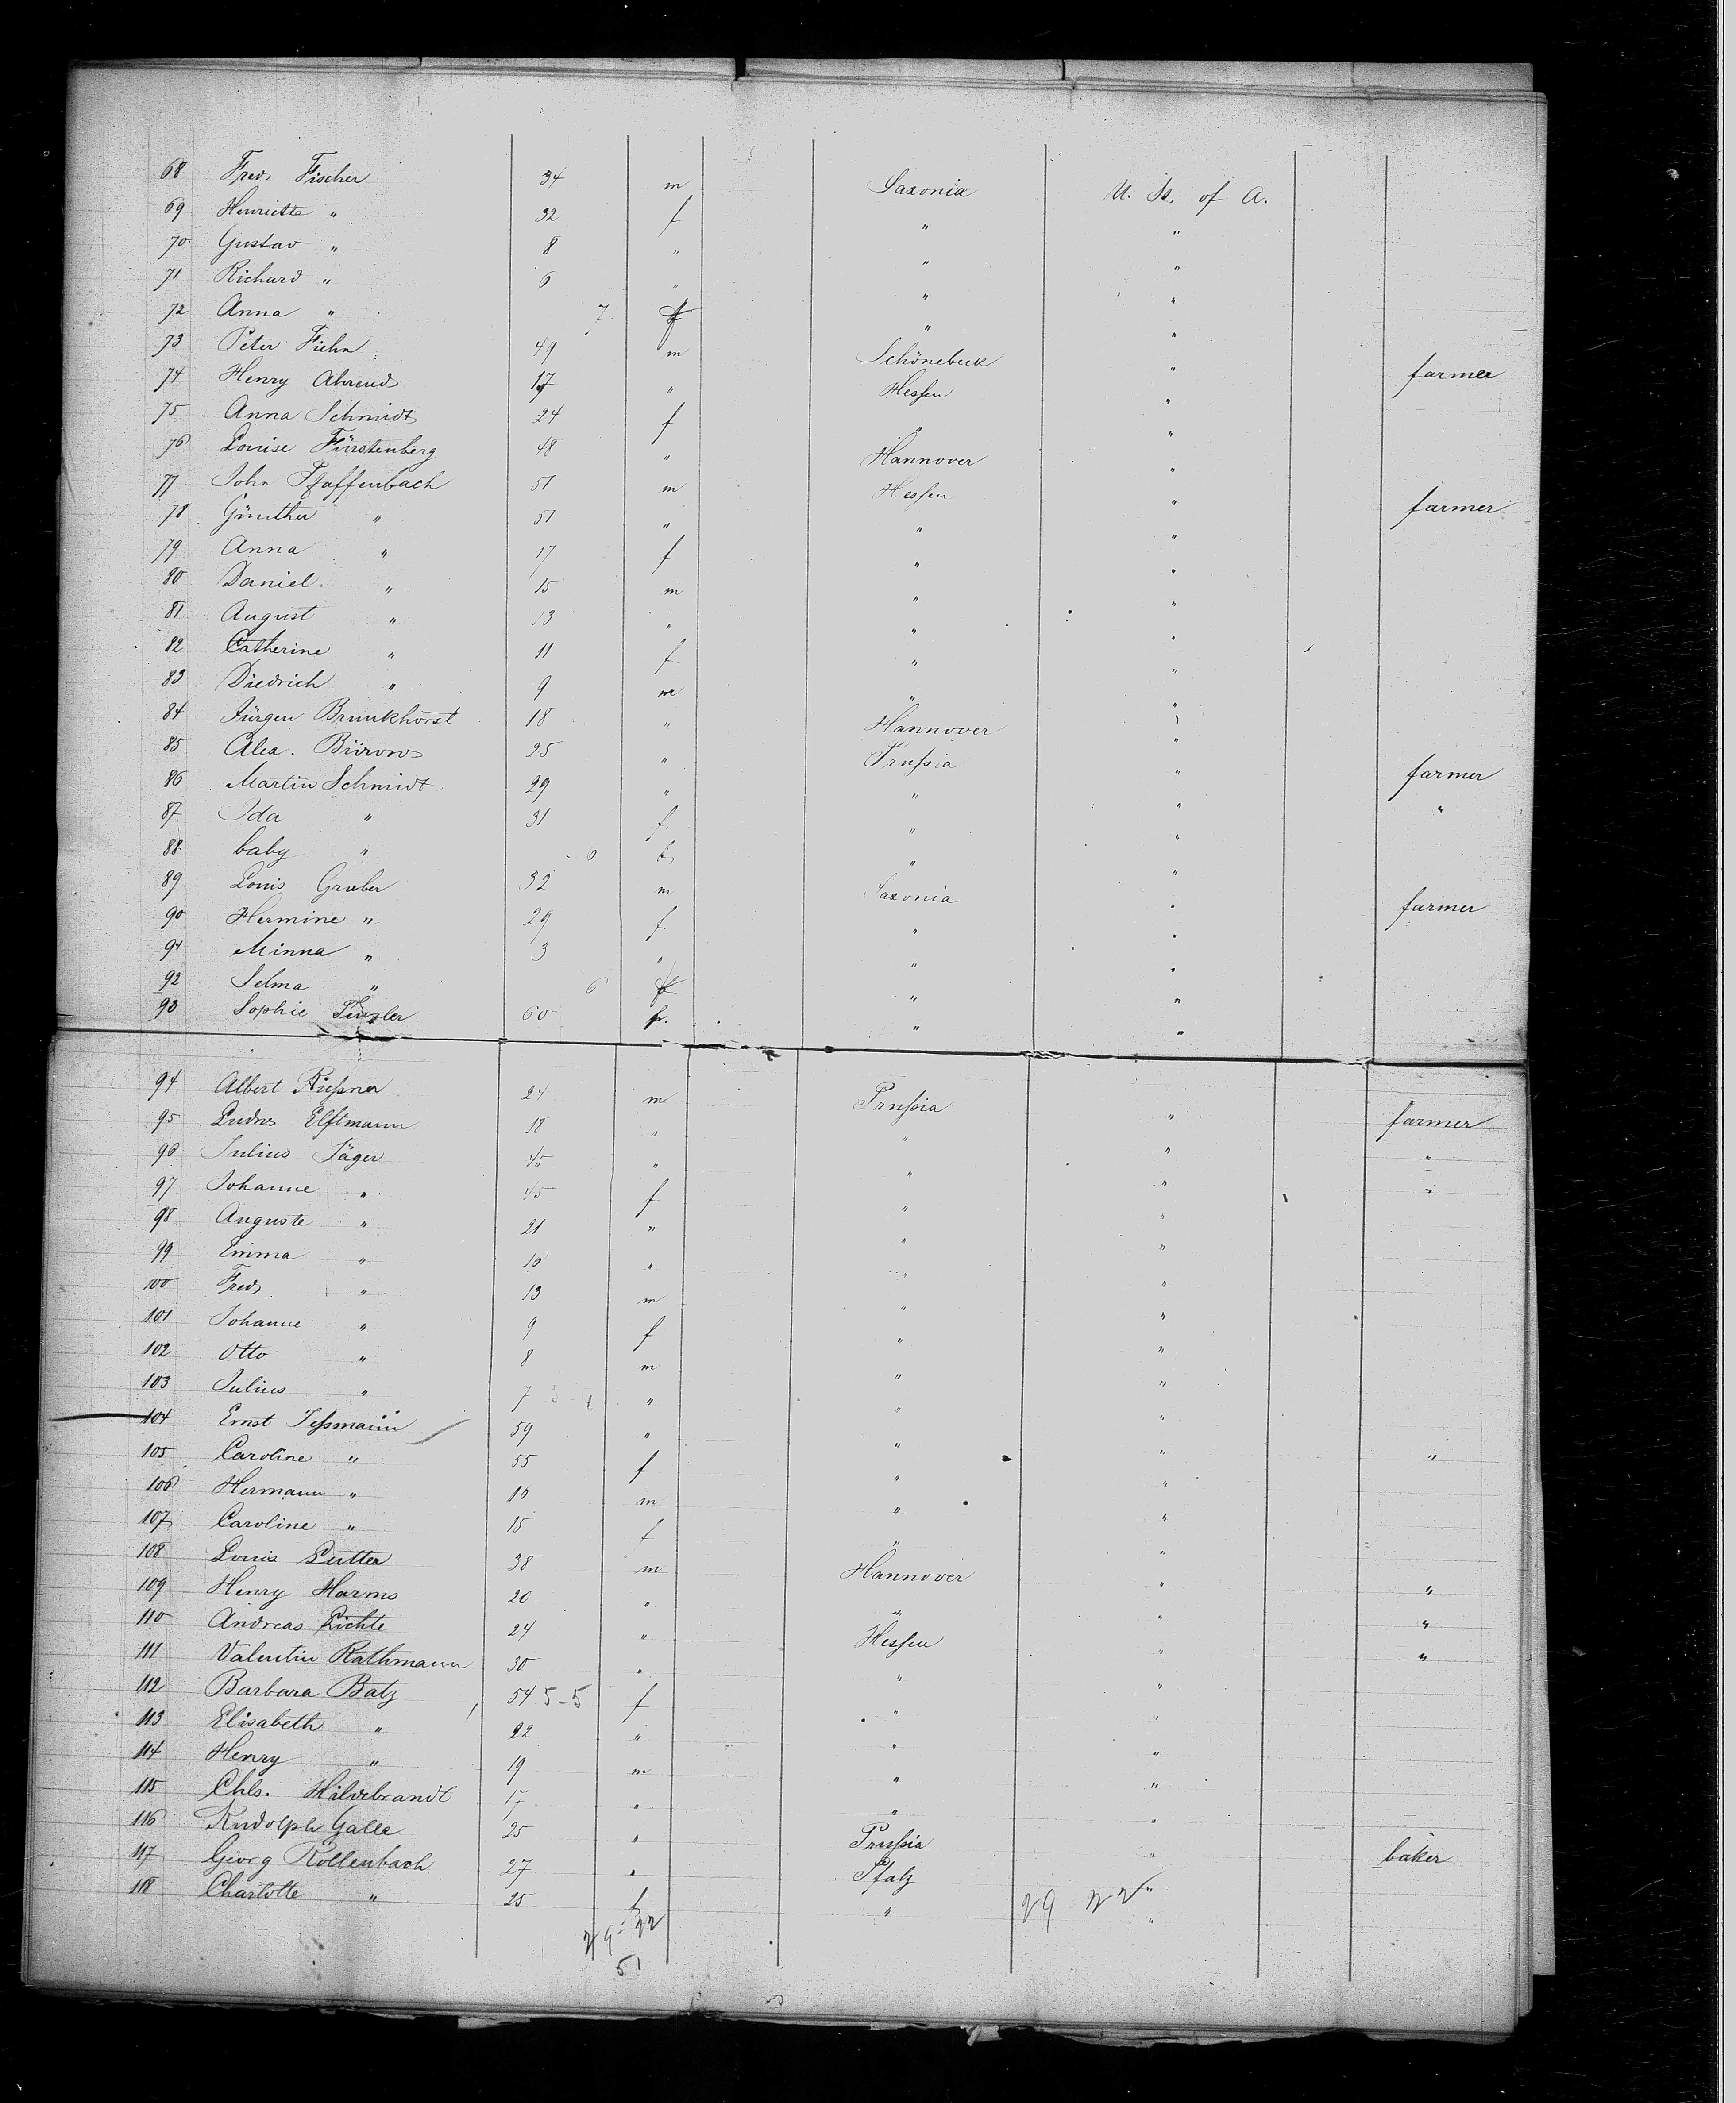 68 Fred. Fischer 34 m Saxonia U. St. of A.
69 Henriette " 32 f " "
70 Gustav " 8 " " "
71 Richard " 6 " " "
72 Anna " 7 f " "
73 Peter Fiehn 49 m Schönebeck " farmer
74 Henry Ahrends 17 " Hessen "
75 Anna Schmidt 24 f " "
76 Louise Fürstenberg 48 " Hannover "
77 John Pfaffenbach 51 m Hessen " farmer
78 Günther " 51 " " "
79 Anna " 17 f " "
80 Daniel " 15 m " "
81 August " 13 " " "
82 Catherine " 11 f " "
83 Diedrich " 9 m " "
84 Jürgen Brunkhorst 18 " Hannover "
85 Alex. 25 " Prussia " farmer
86 Martin Schmidt 29 " " " "
87 Ida " 31 f " "
88 baby " 6 " "
89 Louis Gruber 32 m Saxonia " farmer
90 Hermine " 29 f " "
91 Minna " 3 " " "
92 Selma " 6 f " "
93 Sophie 60 " "
94 Albert 24 m Prussia " farmer
95 Elftmann 18 " " " "
96 Julius Jäger 45 " " " "
97 Johanne " 45 f " "
98 Auguste " 21 " " "
99 Emma " 10 " " "
100 Fred. " 13 m " "
101 Johanne " 9 f " "
102 Otto " 8 m " "
103 Julius " 7 " " "
104 Ernst Tessmann 59 " " " "
105 Caroline " 55 f " "
106 Hermann " 10 m " "
107 Caroline " 15 f " "
108 Louis Lutter 38 m Hannover " "
109 Henry Harms 20 " " " "
110 Andreas Lichte 24 " Hessen " "
111 Valentin Rathmann 30 " " "
112 Barbara Batz 54 5-5 f " "
113 Elisabeth " 22 " " "
114 Henry " 19 m " "
115 Chls. Hildebrandt 17 " " "
116 Rudolph Galle 25 " Prussia " baker
117 Georg Rollenbach 27 " Pfalz "
118 Charlotte " 25 f " "
29-22 29 22
51